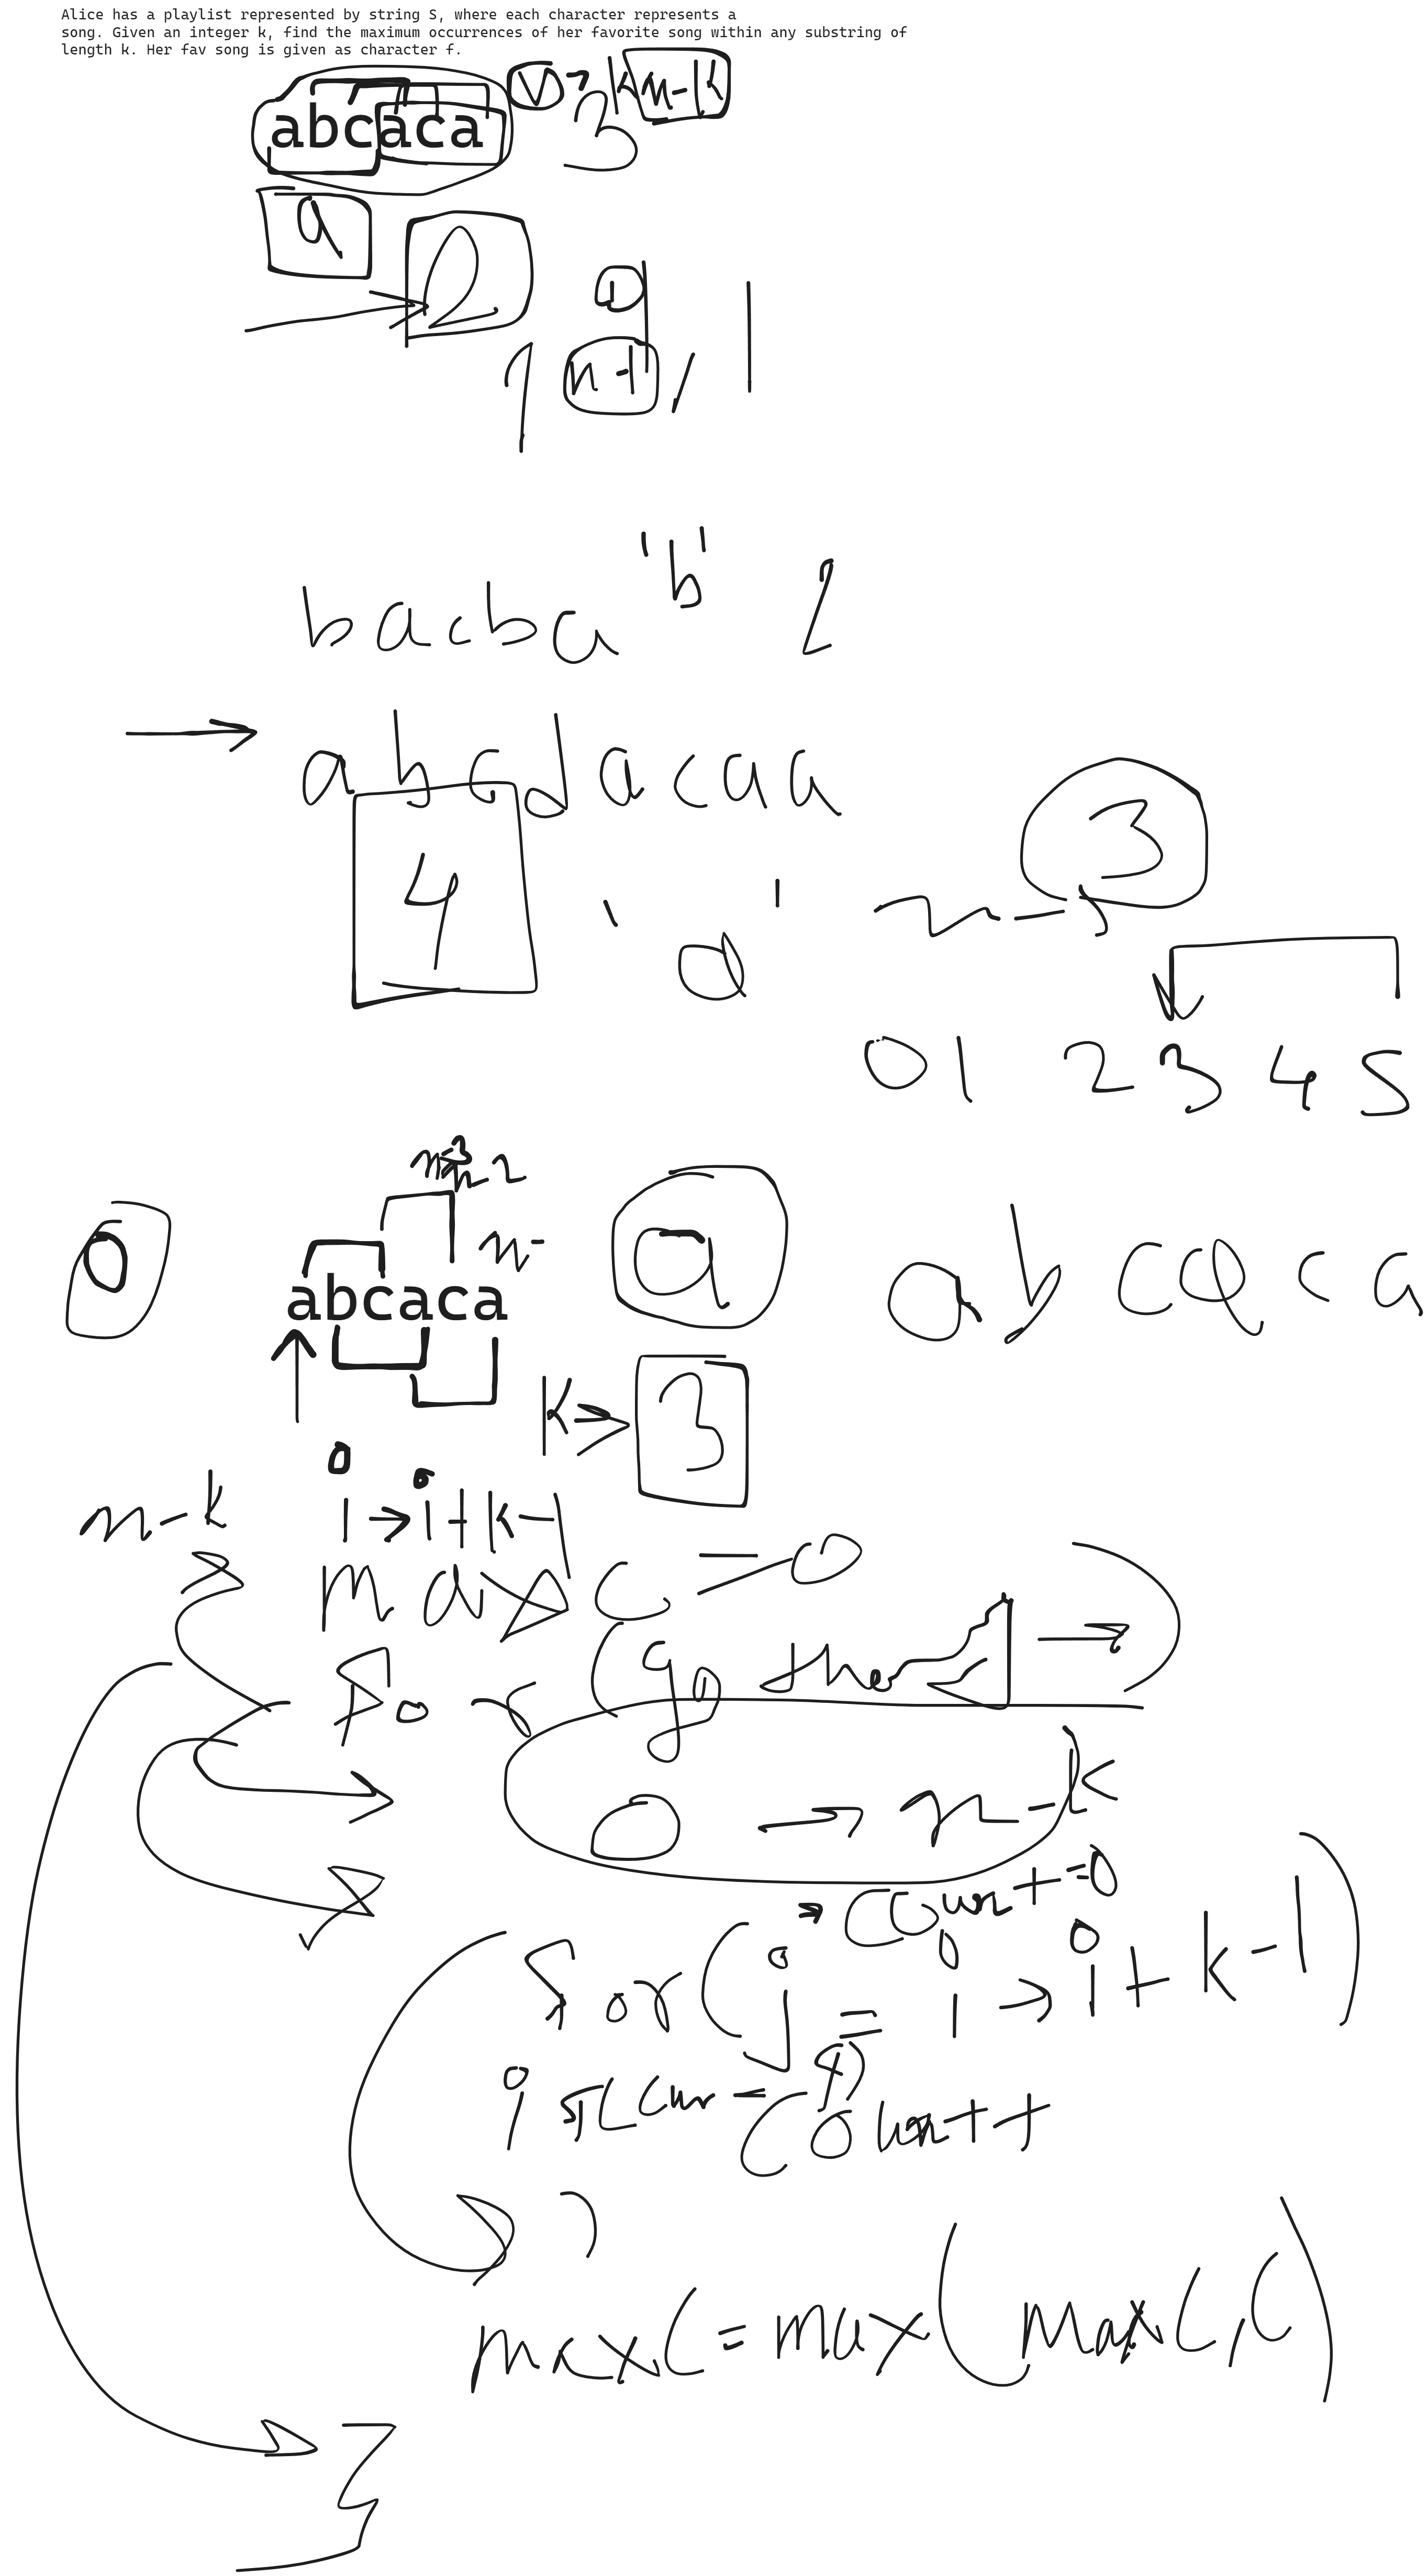 Alice has a playlist represented by string S, where each character represents a
song. Given an integer k, find the maximum occurrences of her favorite song within any substring of
length k. Her fav song is given as character f.
abcaca
3
a
2
n-1
bacba 'b' 2
abcdacaa
4 'a' 3
0 1 2 3 4 5
n-2
0 abcaca a abcaca
k→ 3
n-k i → i+k-1
maxC = 0
for (go the →)
0 → n-k
→ count = 0
for (j = i → i+k-1)
count++
maxC = max(maxC, C)